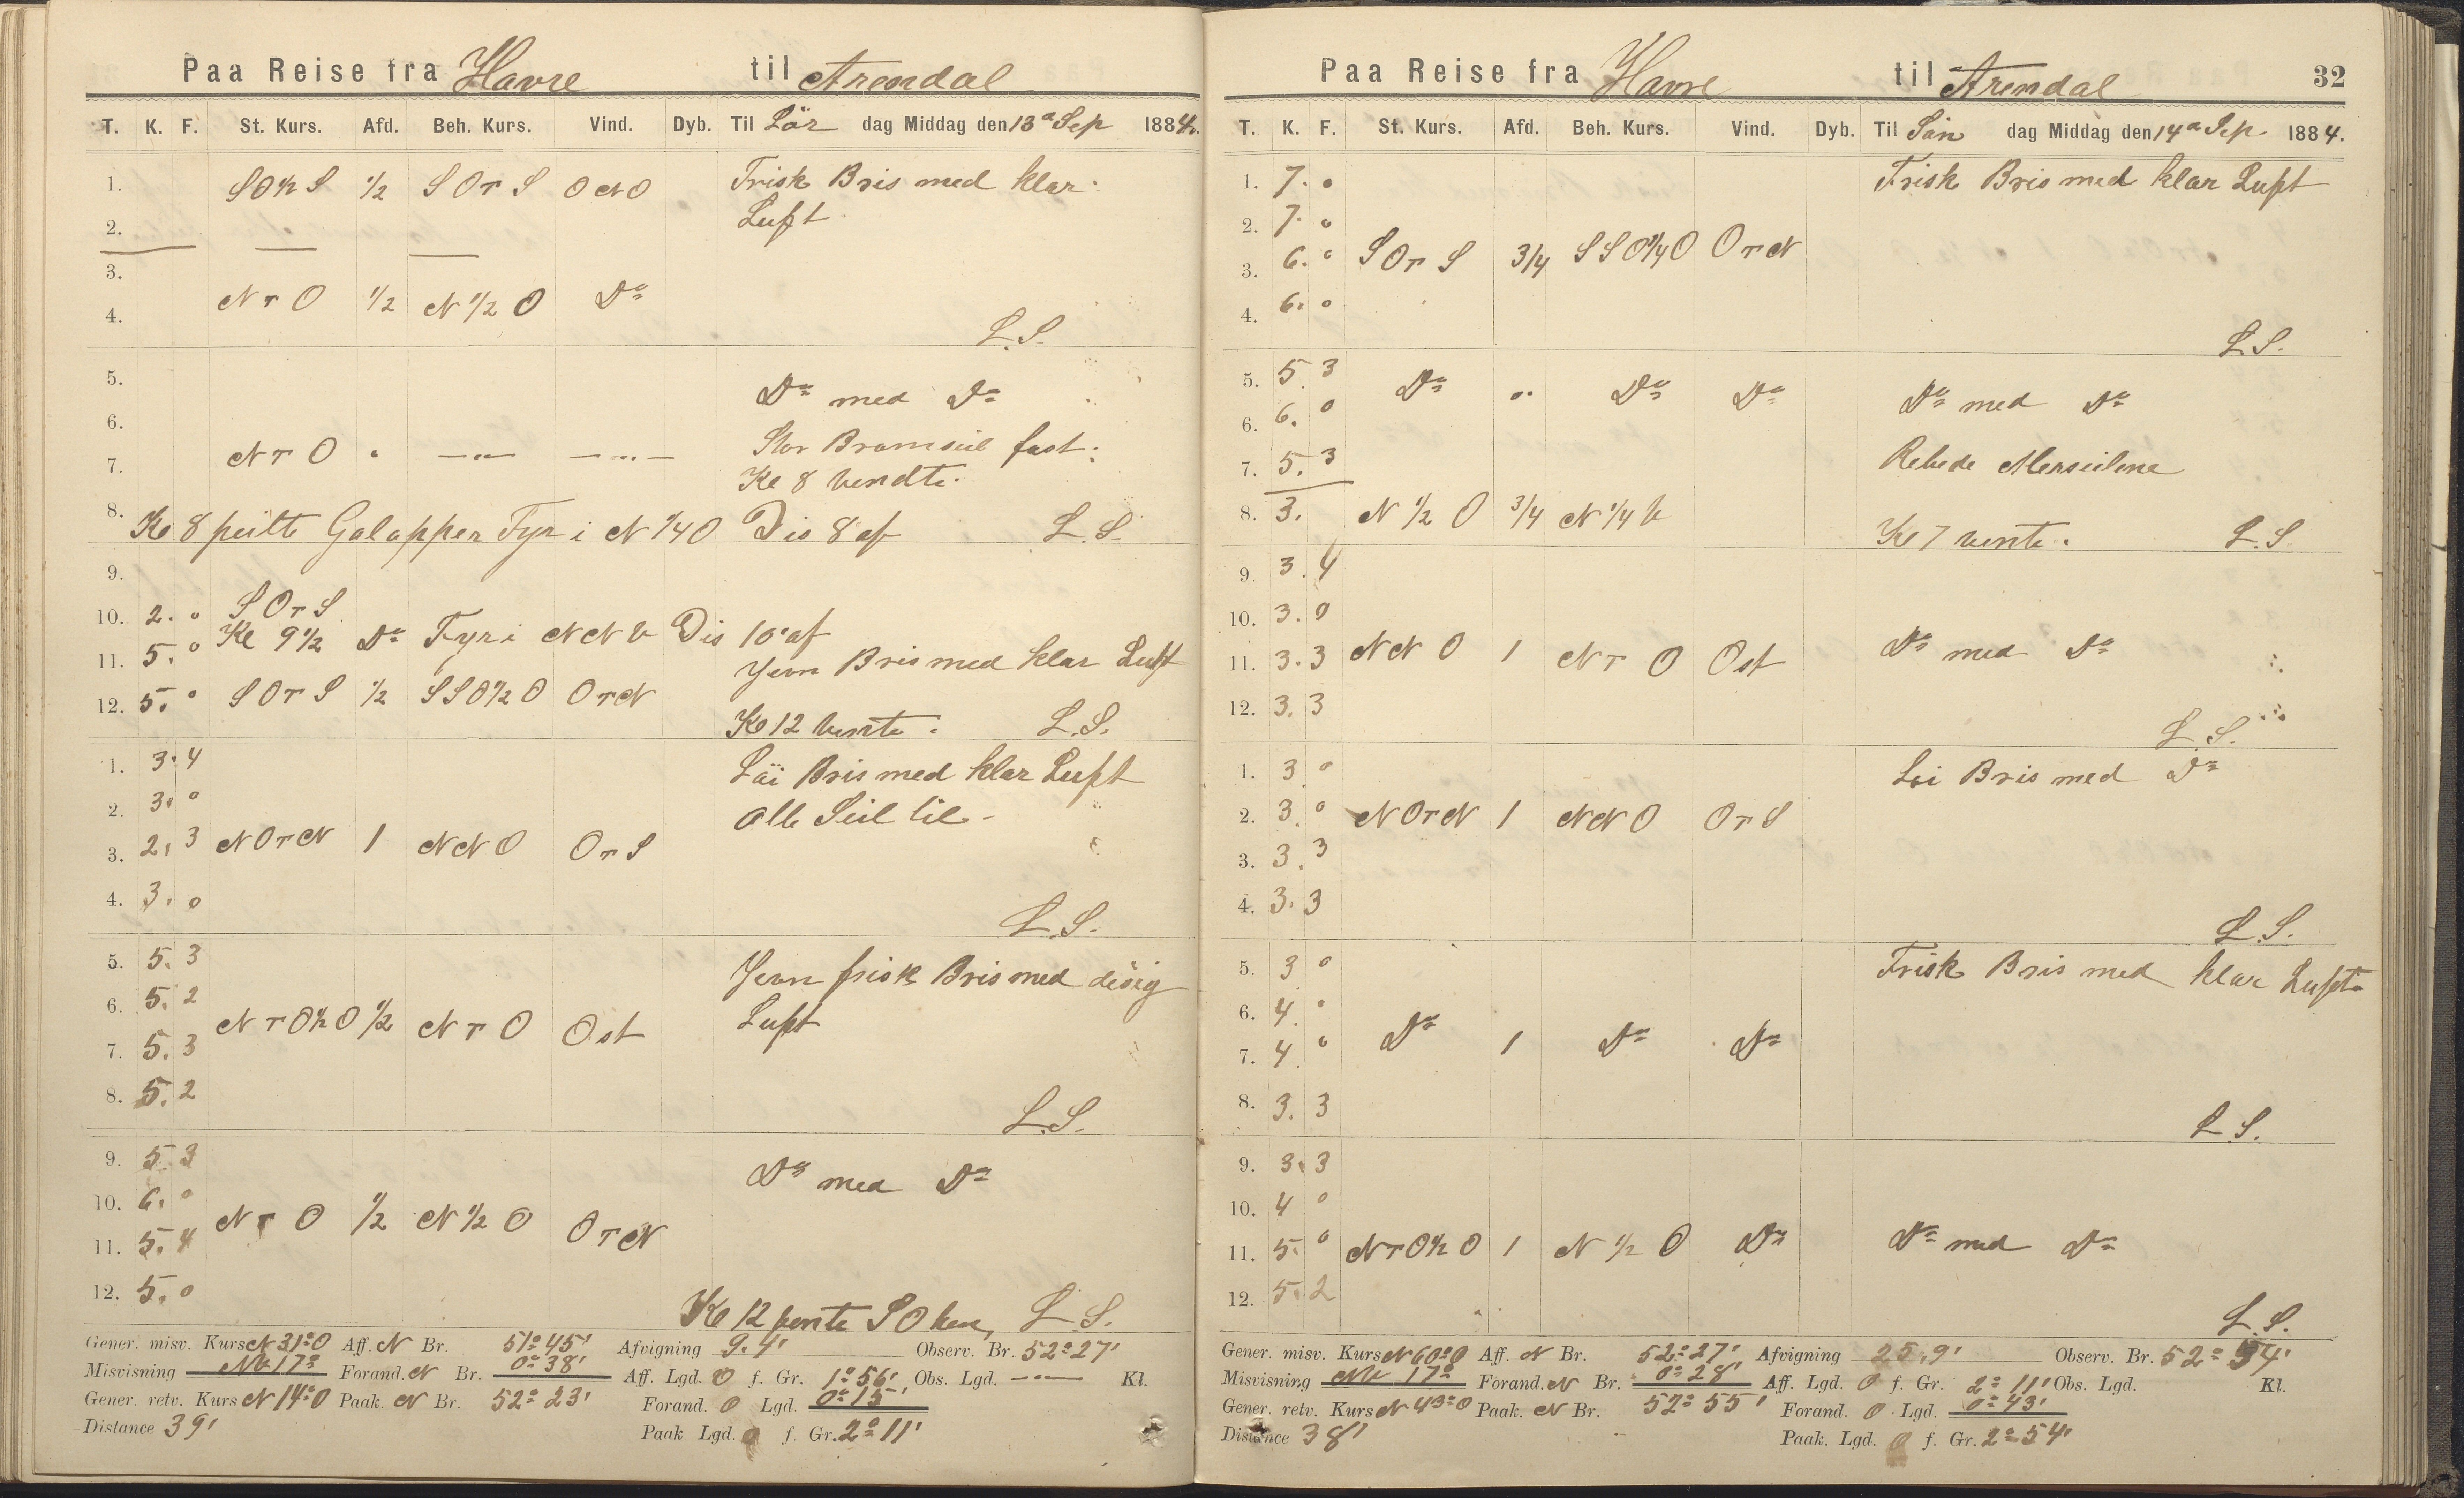 Paa Reise fra Havre til Arendal
T. K. F. St. Kurs. Afd. Beh. Kurs. Vind. Dyb. Til Lör dag Middag den 13de Sep 1884.
1. SO½S ½ SOrS ONO Frisk Bris med klar
2. Luft
3.
4. NrO ½ N½O Do
L.S.
5. Do med Do
6. Stor Bramseil fast.
7. NrO " —"— —"— Kl 8 vendte.
8. Kl 8 peilte Galopper Fyr i N¼O Dis 8 af L.S.
9.
10. 2. 0 SOrS
Kl 9½ Do Fyr i NNV Dis 10 af
11. 5. 0 Jevn Bris med klar Luft
12. 5. 0 SOrS ½ SSO½O OrN
Kl 12 vente. L.S.
1. 3. 4 Löi Bris med klar Luft
2. 3. 0 Alle Seil til
3. 2. 3 NOrN 1 NNO OrS
4. 3. 0
L.S.
5. 5. 3 Jevn frisk Bris med disig
6. 5. 2 NrO½O ½ NrO Ost Luft
7. 5. 3
8. 5. 2
L.S.
9. 5. 3 Do med Do
10. 6. 0 NrO ½ N½O OrN
11. 5. 4
12. 5. 0
Kl 12 vente SO L.S.
Gener. misv. Kurs N 31° O Aff. N Br. 51° 45' Afvigning 9.4' Observ. Br. 52° 27'
Misvisning NV 17° Forand. N Br. 0° 38' Aff. Lgd. O f. Gr. 1° 56' Obs. Lgd. —"— Kl.
Gener. retv. Kurs N 14° O Paak. N Br. 52° 23' Forand. O Lgd. 0° 15'
Distance 39' Paak Lgd. O f. Gr. 2° 11'
Paa Reise fra Havre til Arendal 32
T. K. F. St. Kurs. Afd. Beh. Kurs. Vind. Dyb. Til Sön dag Middag den 14de Sep. 1884.
1. 7. 0 Frisk Bris med klar Luft
2. 7. 0
3. 6. 0 SOrS 3/4 SSO¼O OrN
4. 6. 0
L.S.
5. 5. 3 Do " Do Do Do med Do
6. 6. 0
7. 5. 3 Rebede Merseilene
8. 3. N½O 3/4 N¼V
Kl 7 vente. L.S.
9. 3. 4
10. 3. 0
11. 3. 3 NNO 1 NrO Ost Do med Do
12. 3. 3
L.S.
1. 3 0 Löi Bris med Do
2. 3. 0 NOrN 1 NNO OrS
3. 3. 3
4. 3. 3
L.S.
5. 3 0 Frisk Bris med klar Luft
6. 4. 0
7. 4. 0 Do 1 Do Do
8. 3. 3
L.S.
9. 3. 3
10. 4 0
11. 5. 0 NrO½O 1 N½O Do Do med Do
12. 5. 2
L.S.
Gener. misv. Kurs N 60° O Aff. N Br. 52° 27' Afvigning 25.9' Observ. Br. 52° 54'
Misvisning NV 17° Forand. N Br. 0° 28' Aff. Lgd. O f. Gr. 2° 11' Obs. Lgd. Kl.
Gener. retv. Kurs N 43° O Paak. N Br. 52° 55' Forand. O Lgd. 0° 43'
Distance 38' Paak. Lgd. O f. Gr. 2° 54'